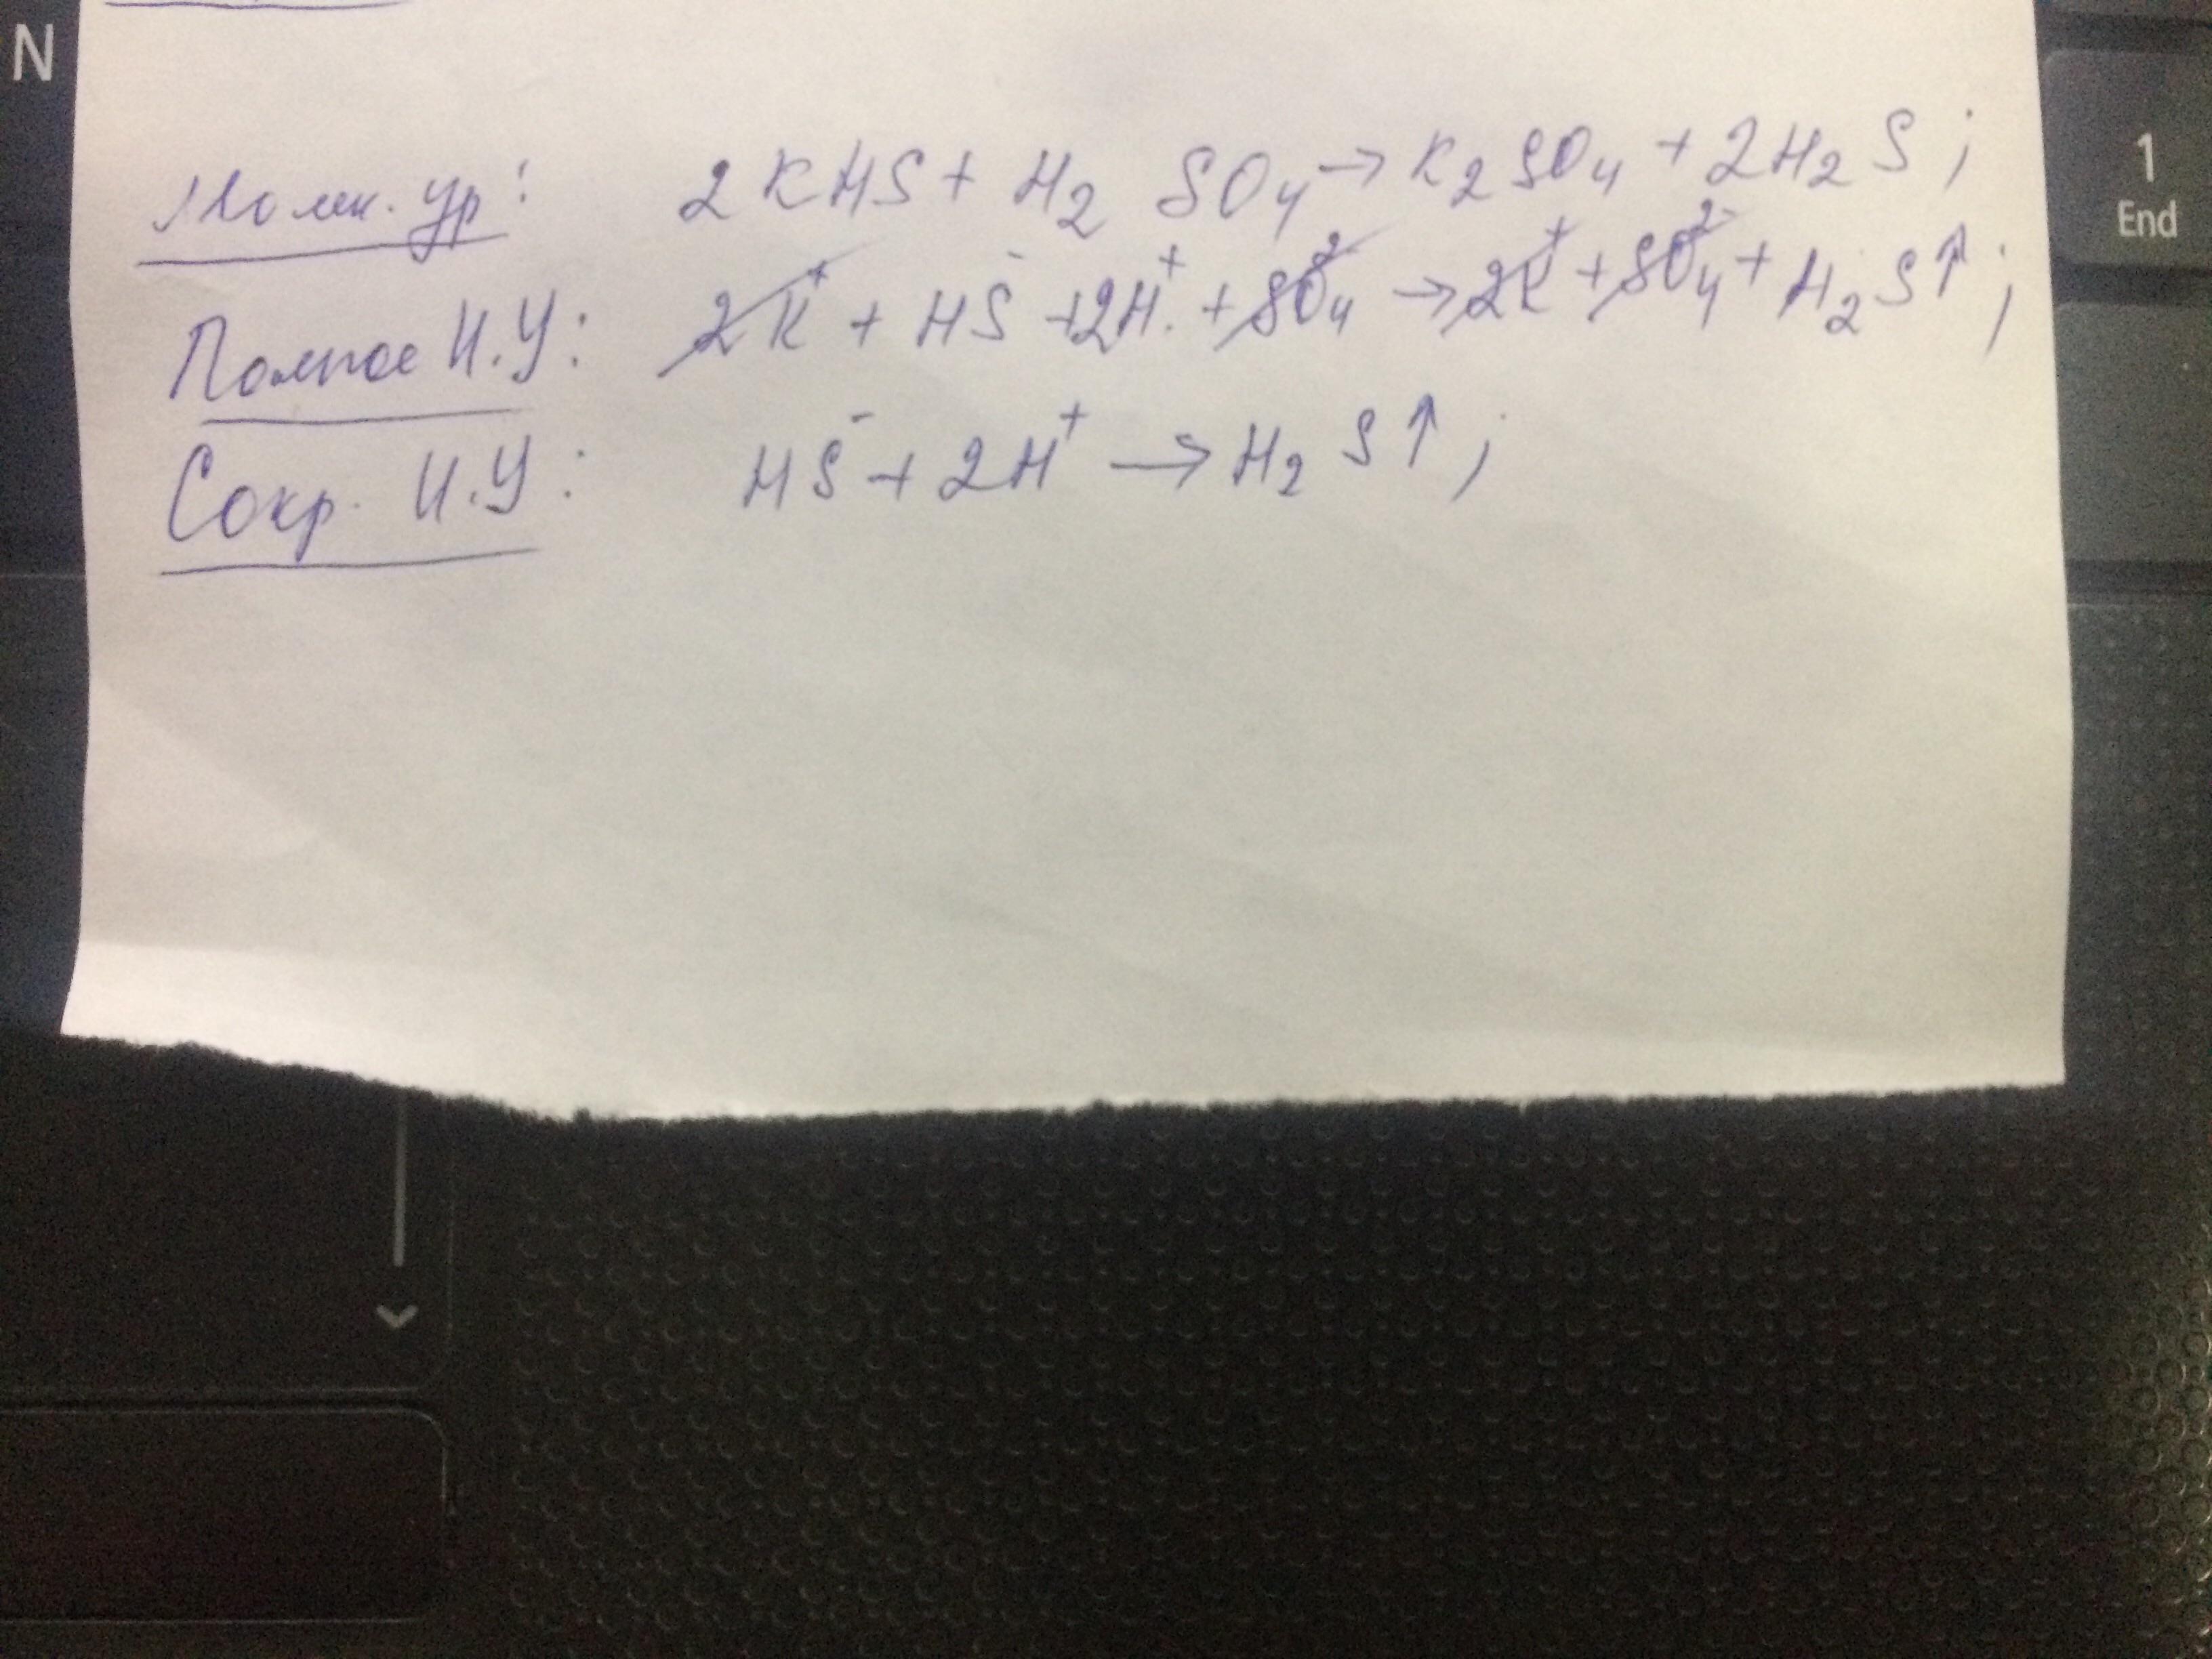 N
Молек. ур: 2KHS + H₂SO₄ → K₂SO₄ + 2H₂S ;
Полное И.У: 2K⁺ + HS⁻ + 2H⁺ + SO₄²⁻ → 2K⁺ + SO₄²⁻ + H₂S↑ ;
Сокр. И.У: HS⁻ + 2H⁺ → H₂S↑ ;
1
End